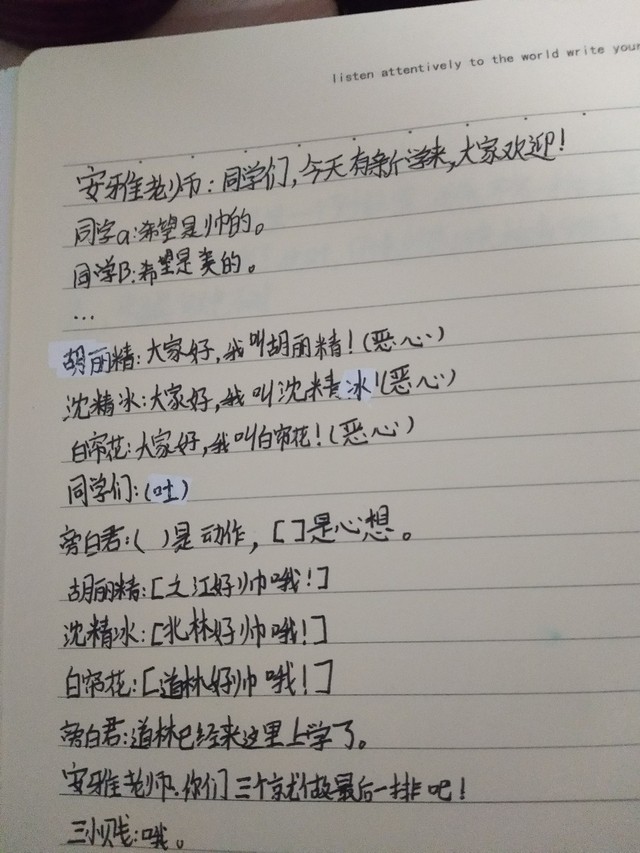 listen attentively to the world write your
安雅老师:同学们,今天有新同学来,大家欢迎!
同学a:希望是帅的。
同学B:希望是美的。
...
胡丽精:大家好,我叫胡丽精!(恶心)
沈精冰:大家好,我叫沈精冰!(恶心)
白帘花:大家好,我叫白帘花!(恶心)
同学们:(吐)
旁白君:( )是动作,[ ]是心想。
胡丽精:[之江好帅哦!]
沈精冰:[北林好帅哦!]
白帘花:[道林好帅哦!]
旁白君:道林已经来这里上学了。
安雅老师:你们三个就做最后一排吧!
三小贱:哦。